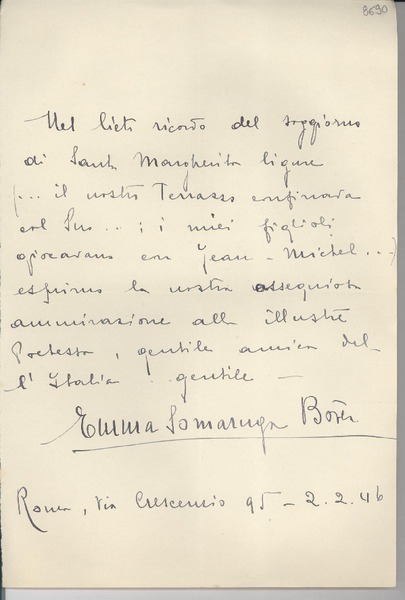 8690
Nel lieto ricordo del soggiorno
di Santa Margherita ligure
(... il nostro Terrazzo confinava
col Suo... ; i miei figlioli
giocavano con Jean-Michel...)
esprimo la nostra ossequiosa
ammirazione alla illustre
Poetessa, gentile amica del
l'Italia gentile —
Emma Somaruga
Roma, Via Crescenzio 95 – 2.2.46